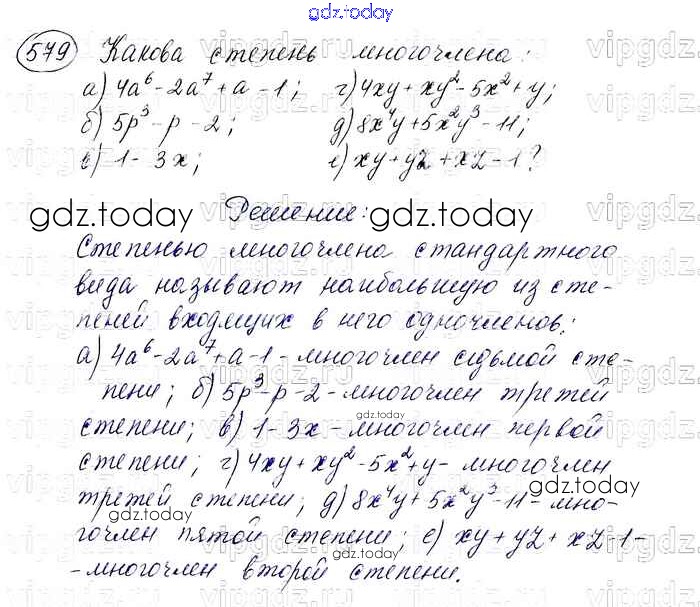 gdz.today
579 Какова степень многочлена:
а) 4a⁶-2a⁷+a-1; г) 4xy+xy²-5x²+y;
б) 5p³-p-2; д) 8x⁴y+5x²y³-11;
в) 1-3x; е) xy+yz+xz-1?
gdz.today Решение: gdz.today
Степенью многочлена стандартного
вида называют наибольшую из сте-
пеней входящих в него одночленов;
а) 4a⁶-2a⁷+a-1 - многочлен седьмой сте-
пени; б) 5p³-p-2 - многочлен третей
gdz.today
степени; в) 1-3x - многочлен первой
степени; г) 4xy+xy²-5x²+y - многочлен
третей степени; д) 8x⁴y+5x²y³-11 - мно-
gdz.today gdz.today
гочлен пятой степени; е) xy+yz+xz-1-
gdz.today
-многочлен второй степени.